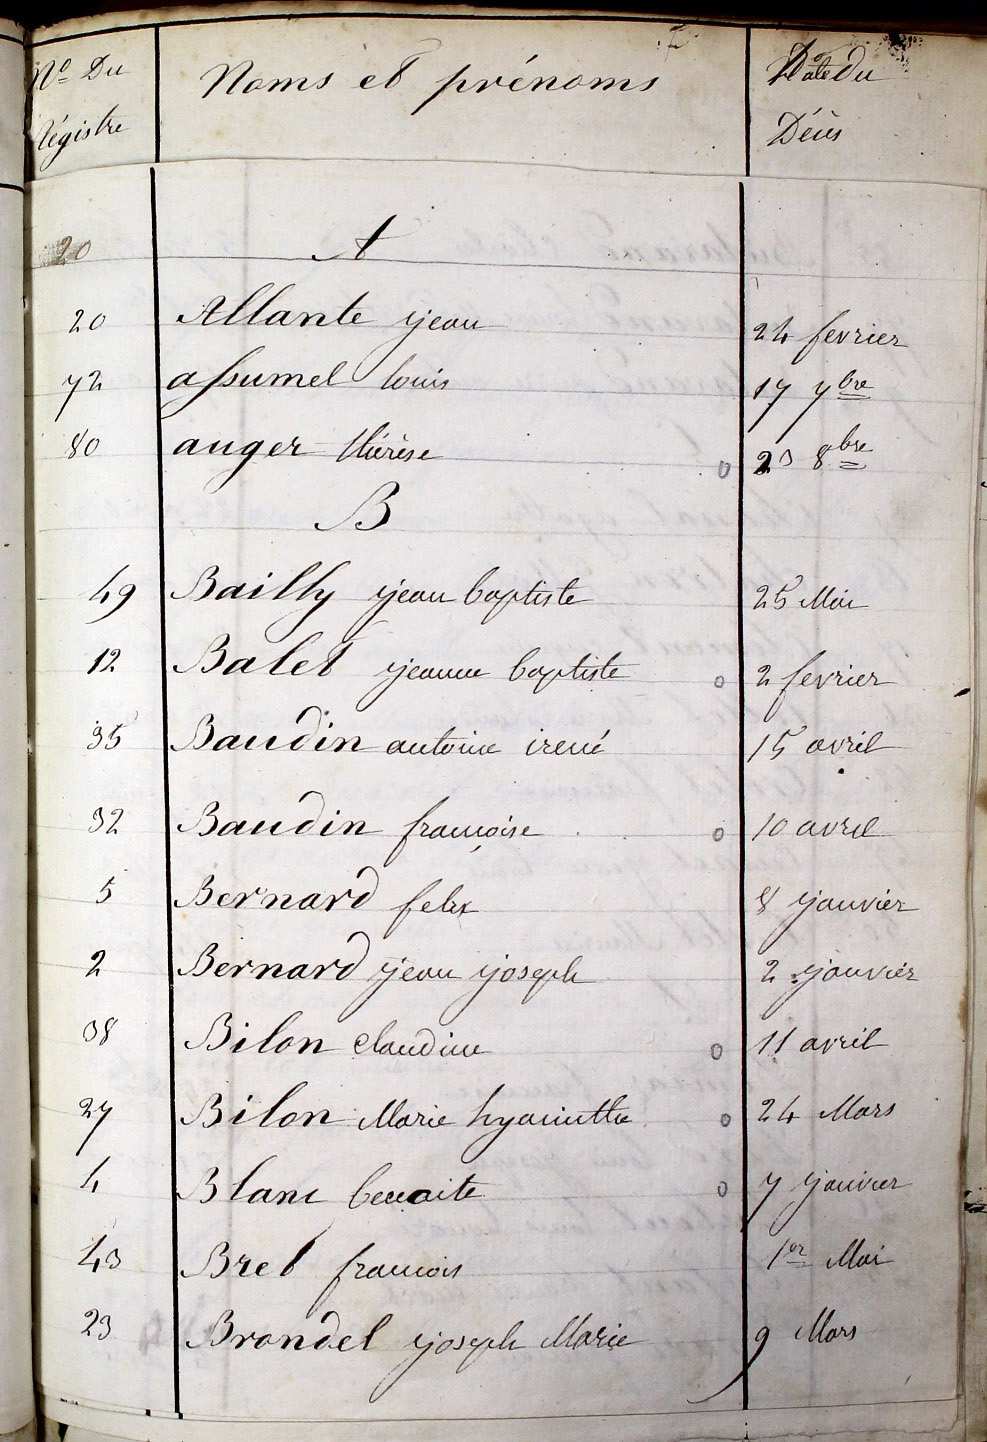 No Du Régistre Noms et prénoms Date du Décès
20 A
20 Allante jean 24 fevrier
72 assumel louis 17 7bre
80 auger thérèse 0 23 8bre
B
49 Bailly jean baptiste 25 Mai
12 Balet jeanne baptiste 0 2 fevrier
35 Baudin antoine irené 15 avril
32 Baudin françoise 0 10 avril
5 Bernard felix 8 janvier
2 Bernard jean joseph 2 janvier
38 Bilon claudine 0 11 avril
27 Bilon Marie hyacinthe 0 24 Mars
4 Blanc benoite 0 7 janvier
43 Bret francois 1er Mai
23 Brondel joseph Marie 9 Mars